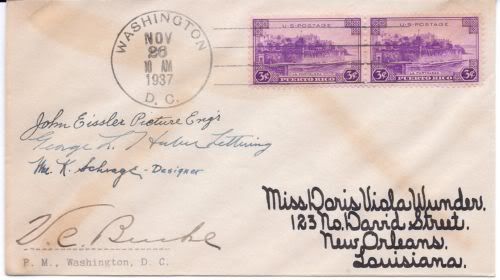 WASHINGTON
NOV
26
10 AM
1937
D. C.
U·S·POSTAGE
3¢ PUERTO RICO 3¢
U·S·POSTAGE
3¢ PUERTO RICO 3¢
John Eissler Picture Engr
George L. Huber Lettering
Wm. K. Schrage - Designer
V. C. Burke
P. M., Washington, D. C.
Miss Doris Viola Wunder.
123 No. David Street.
New Orleans.
Louisiana.